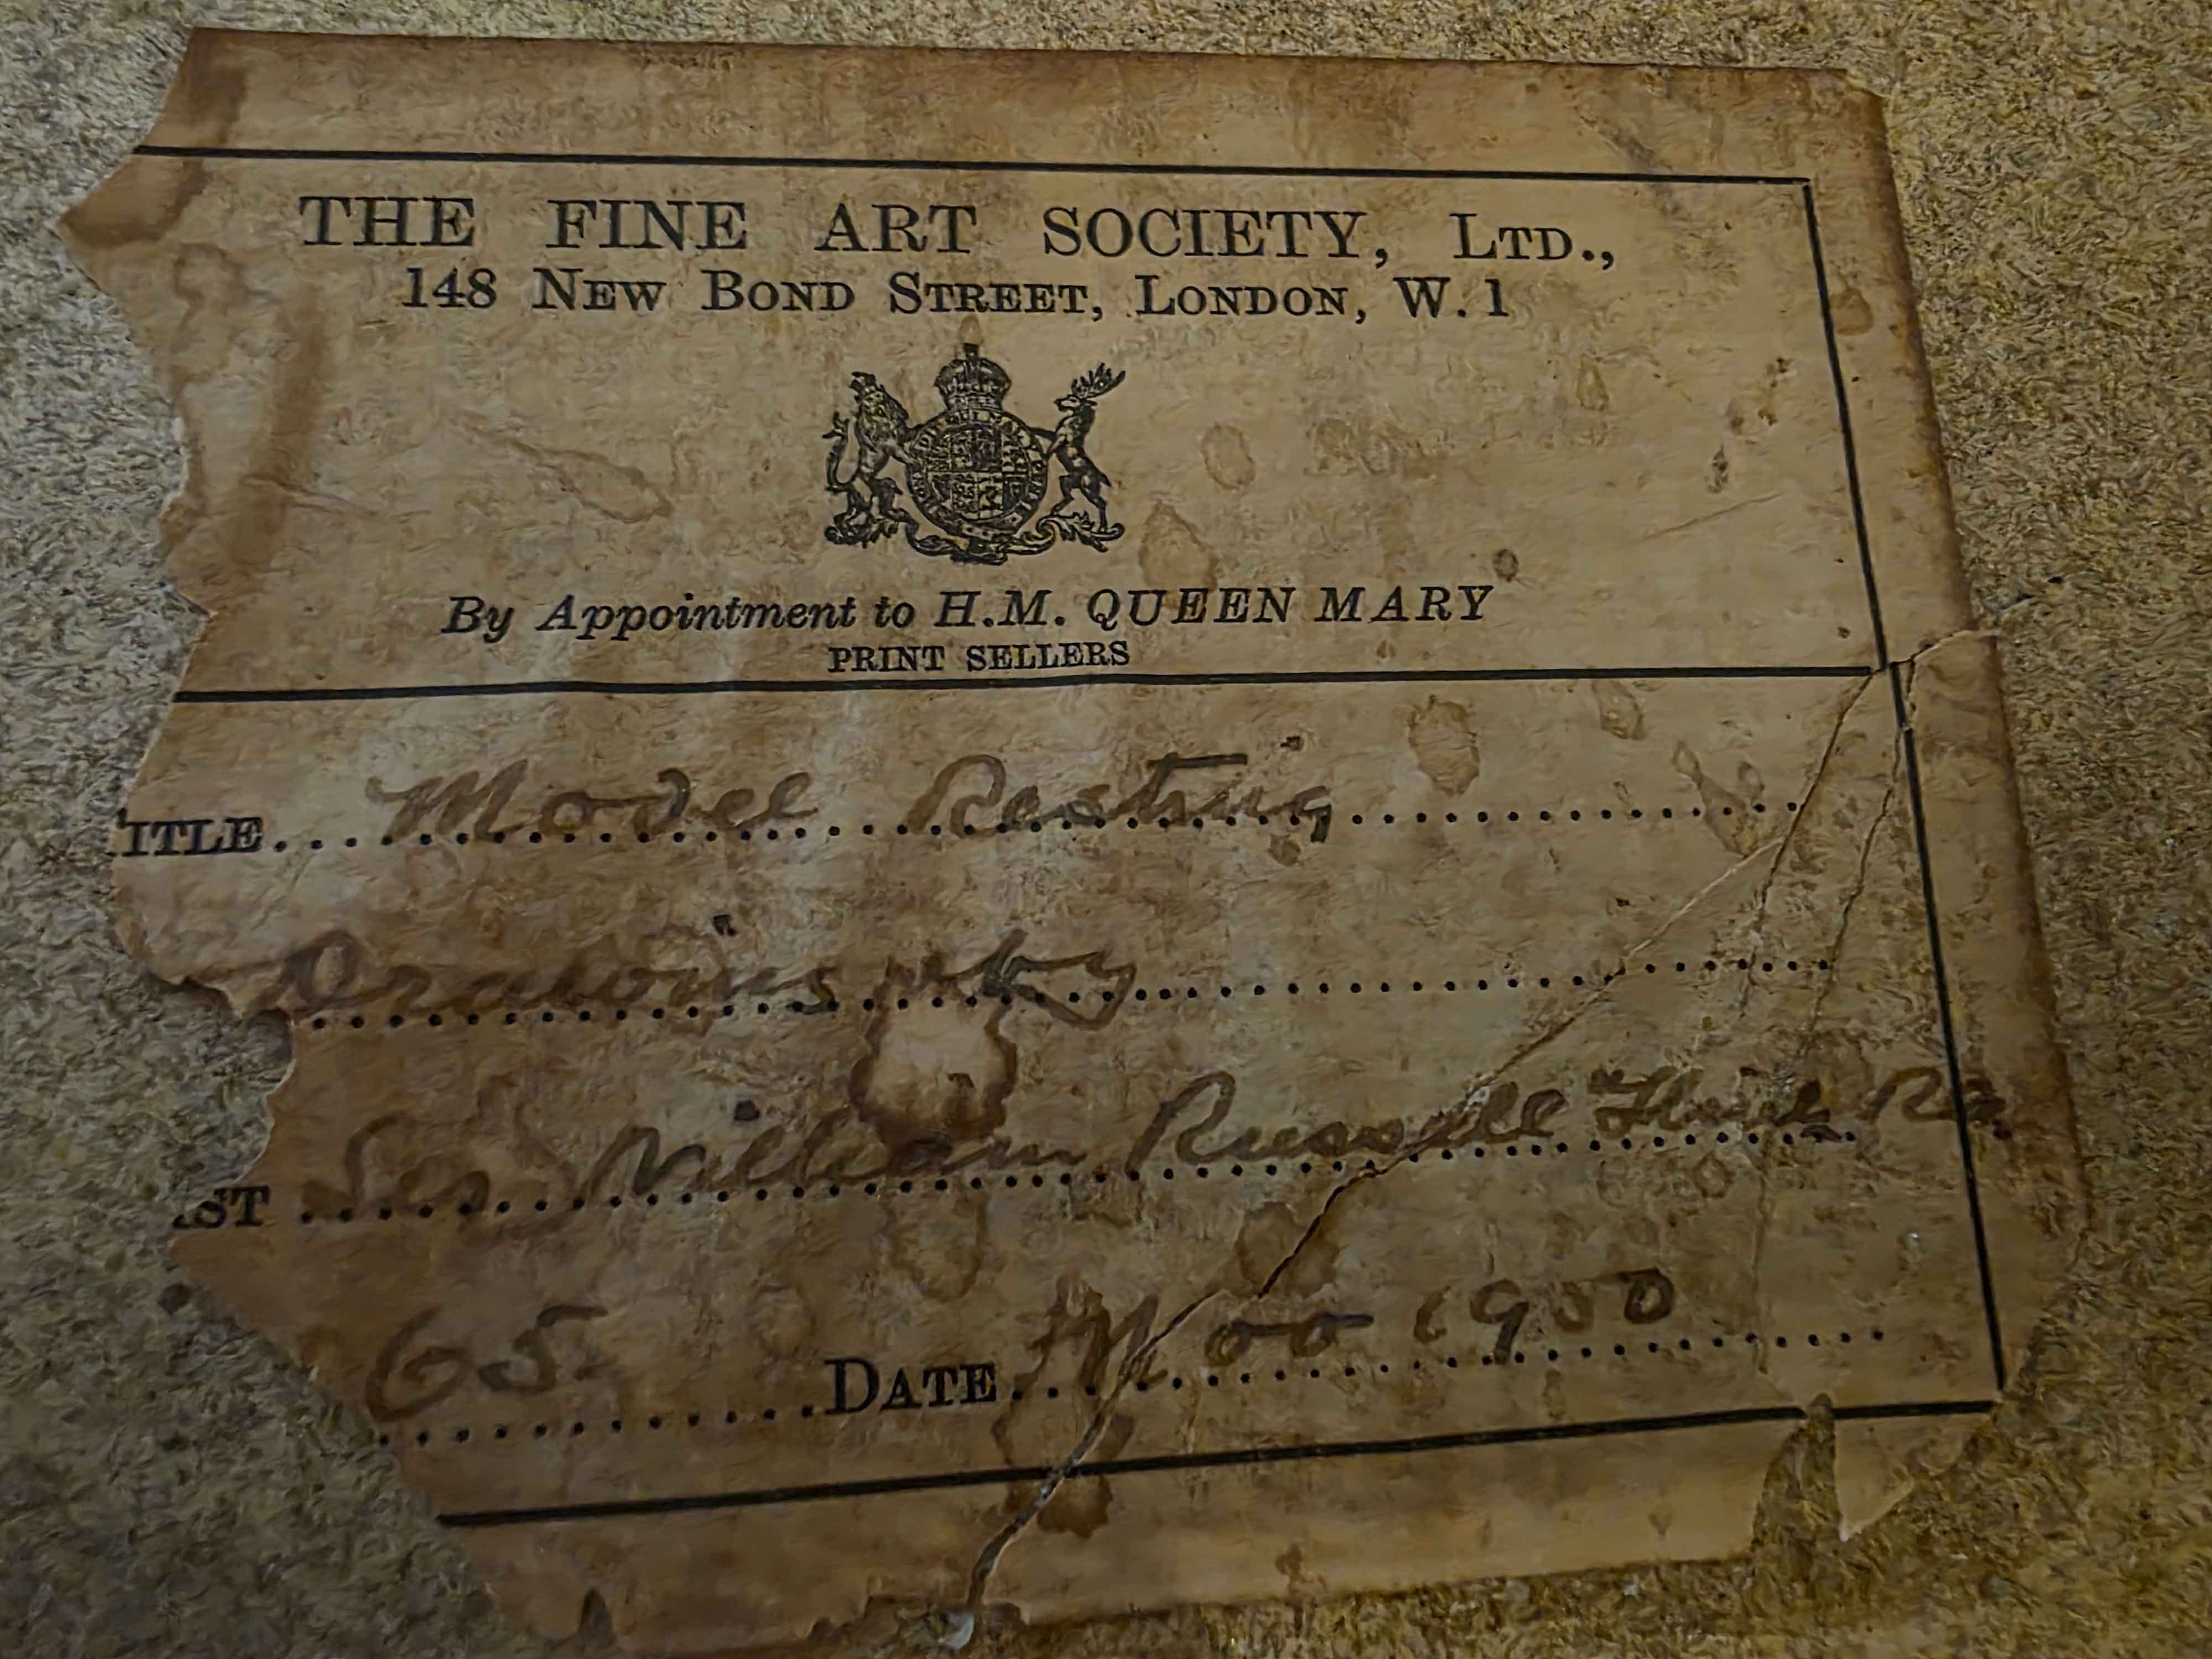 THE FINE ART SOCIETY, LTD.,
148 NEW BOND STREET, LONDON, W. 1
By Appointment to H.M. QUEEN MARY
PRINT SELLERS
ITLE Model Resting
Drawing by
IST Sir William Russell Flint RA
65. DATE 1950